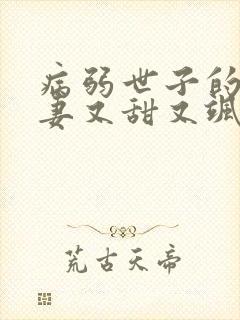 病弱世子的
妻又甜又飒
荒古天帝